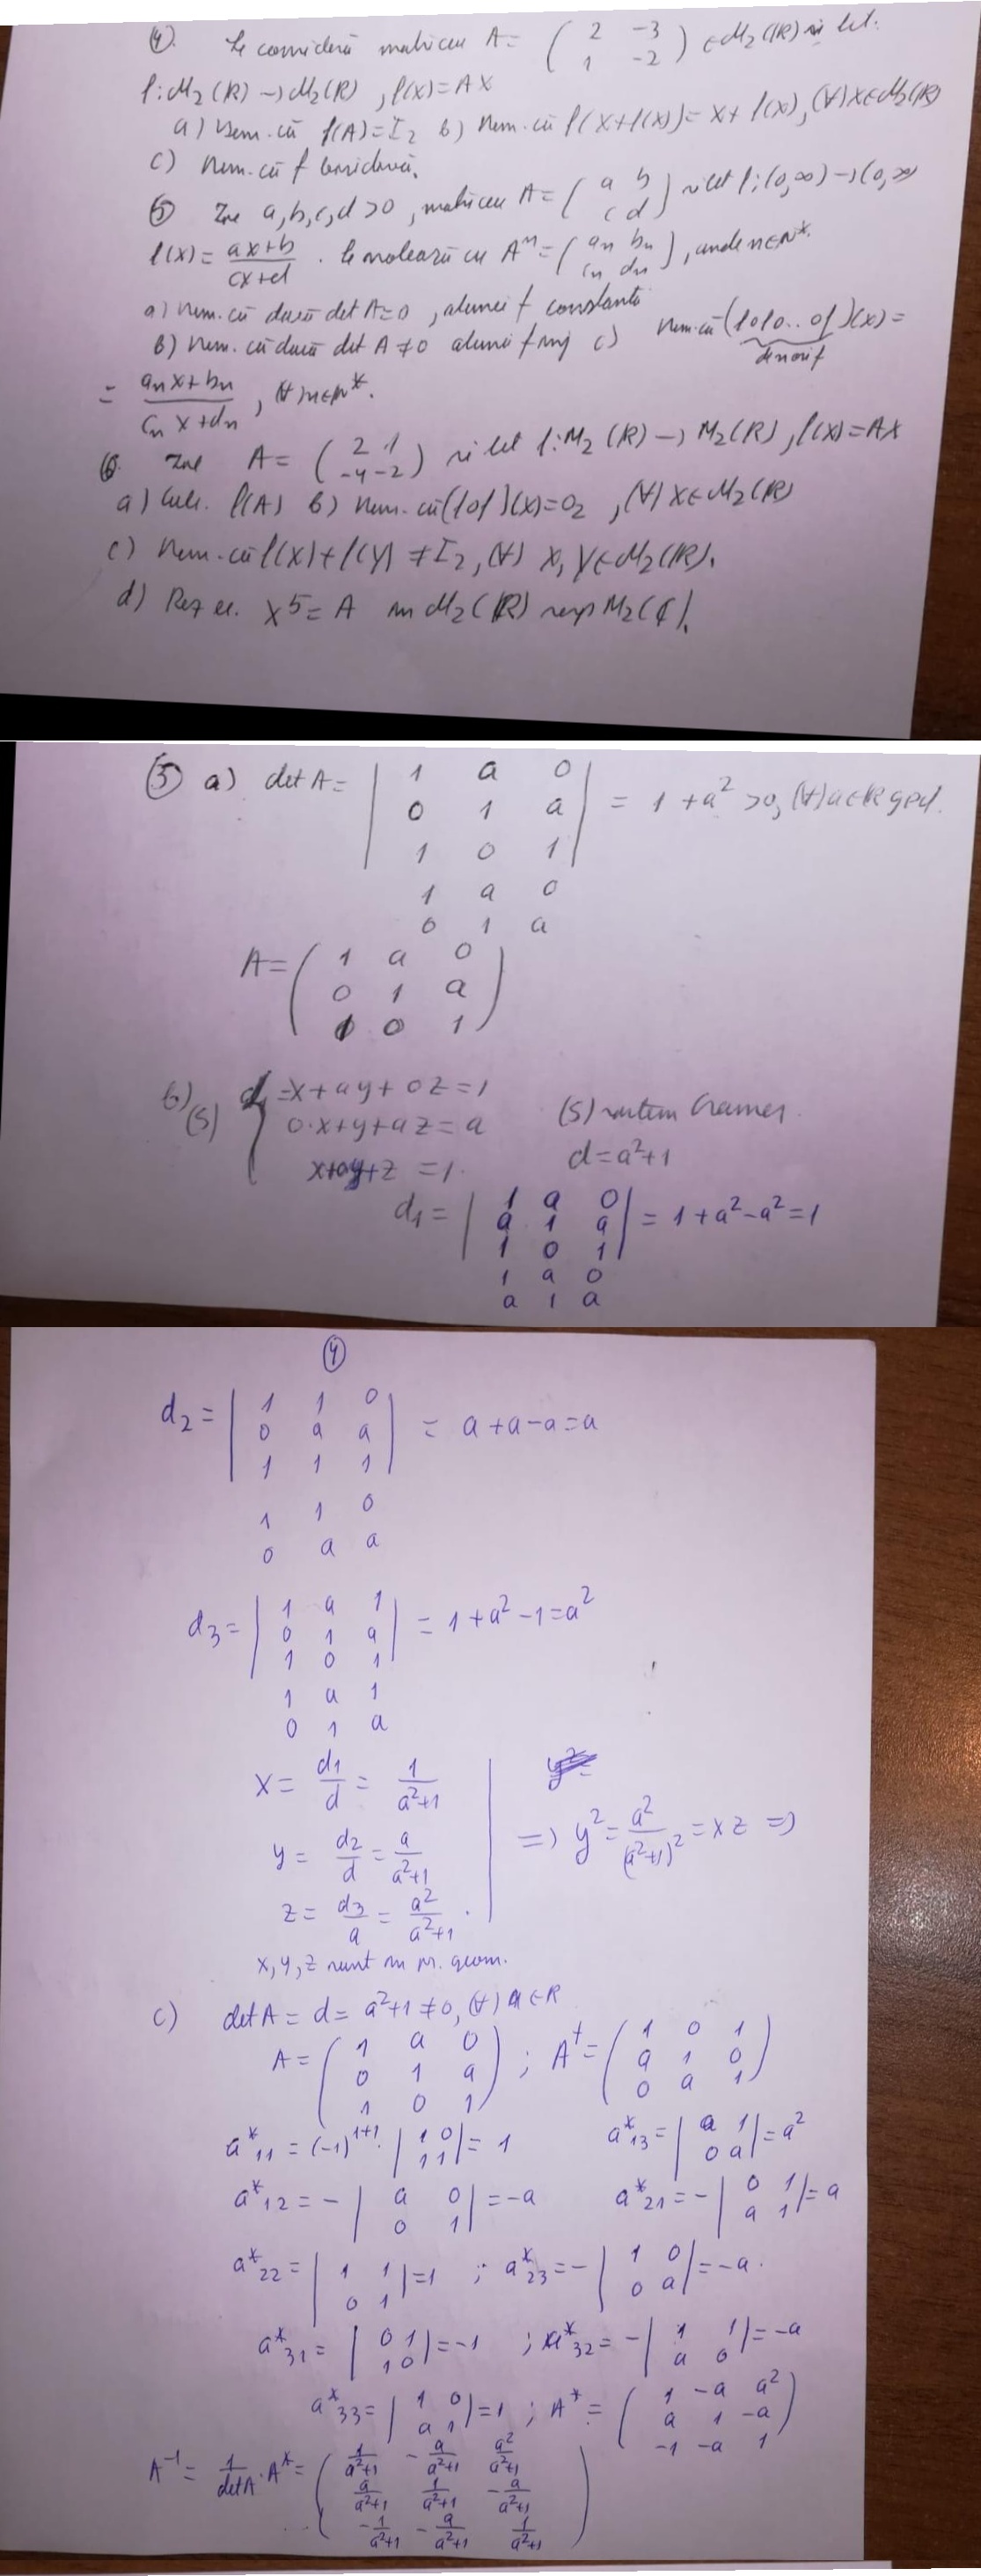 ④. Se consideră matricea A= ( 2 -3
1 -2 ) ∈M₂(ℝ) și fct.
f:M₂(ℝ)→M₂(ℝ), f(x)=AX
a) Dem. că f(A)=I₂ b) Dem. că f(X+f(X))=X+f(X), (∀)X∈M₂(ℝ)
c) Dem. că f bijectivă.
⑤ Fie a,b,c,d>0, matricea A= ( a b
c d ) și fct f:(0,∞)→(0,∞)
f(x)= ax+b
cx+d . Se notează cu Aⁿ= ( an bn
cn dn ), unde n∈N*.
a) Dem. că dacă det A=0, atunci f constantă
b) Dem. că dacă det A≠0 atunci f inj c) Dem. că (fofo..of)(x)=
de n ori f
= anx+bn
cn x+dn , (∀)n∈N*.
⑥. Fie A= ( 2 1
-4 -2 ) și fct f:M₂(ℝ)→M₂(ℝ), f(x)=AX
a) Calc. f(A) b) Dem. că (fof)(X)=O₂, (∀)X∈M₂(ℝ)
c) Dem. că f(X)+f(Y)≠I₂, (∀) X,Y∈M₂(ℝ).
d) Rez ec. X⁵=A în M₂(ℝ) resp M₂(ℂ).
③ a) det A= | 1 a 0
0 1 a
1 0 1 | = 1+a²>0, (∀)a∈ℝ
1 a 0
0 1 a
A= ( 1 a 0
0 1 a
1 0 1 )
b) (S) { x+ay+0z=1
0·x+y+az=a (S) sistem Cramer.
x+z=1. d=a²+1
d₁= | 1 a 0
a 1 a
1 0 1 | = 1+a²-a²=1
1 a 0
a 1 a
④
d₂= | 1 1 0
0 a a
1 1 1 | = a+a-a=a
1 1 0
0 a a
d₃= | 1 a 1
0 1 a
1 0 1 | = 1+a²-1=a²
1 a 1
0 1 a
x= d₁/d = 1/a²+1
y= d₂/d = a/a²+1 ⇒ y²= a²/(a²+1)² =xz ⇒
z= d₃/a = a²/a²+1 .
x,y,z sunt în pr. geom.
c) det A=d=a²+1≠0, (∀)a∈R
A= ( 1 a 0
0 1 a
1 0 1 ) ; Aᵗ= ( 1 0 1
a 1 0
0 a 1 )
a*₁₁=(-1)¹⁺¹· | 1 0
1 1 | =1 a*₁₃= | a 1
0 a | =a²
a*₁₂=- | a 0
0 1 | =-a a*₂₁=- | 0 1
a 1 | =a
a*₂₂= | 1 1
0 1 | =1 ; a*₂₃=- | 1 0
0 a | =-a.
a*₃₁= | 0 1
1 0 | =-1 ; a*₃₂=- | 1 1
a 0 | =-a
a*₃₃= | 1 0
a 1 | =1 ; A*= ( 1 -a a²
a 1 -a
-1 -a 1 )
A⁻¹= 1/detA ·A*= ( 1/a²+1 -a/a²+1 a²/a²+1
a/a²+1 1/a²+1 -a/a²+1
-1/a²+1 -a/a²+1 1/a²+1 )